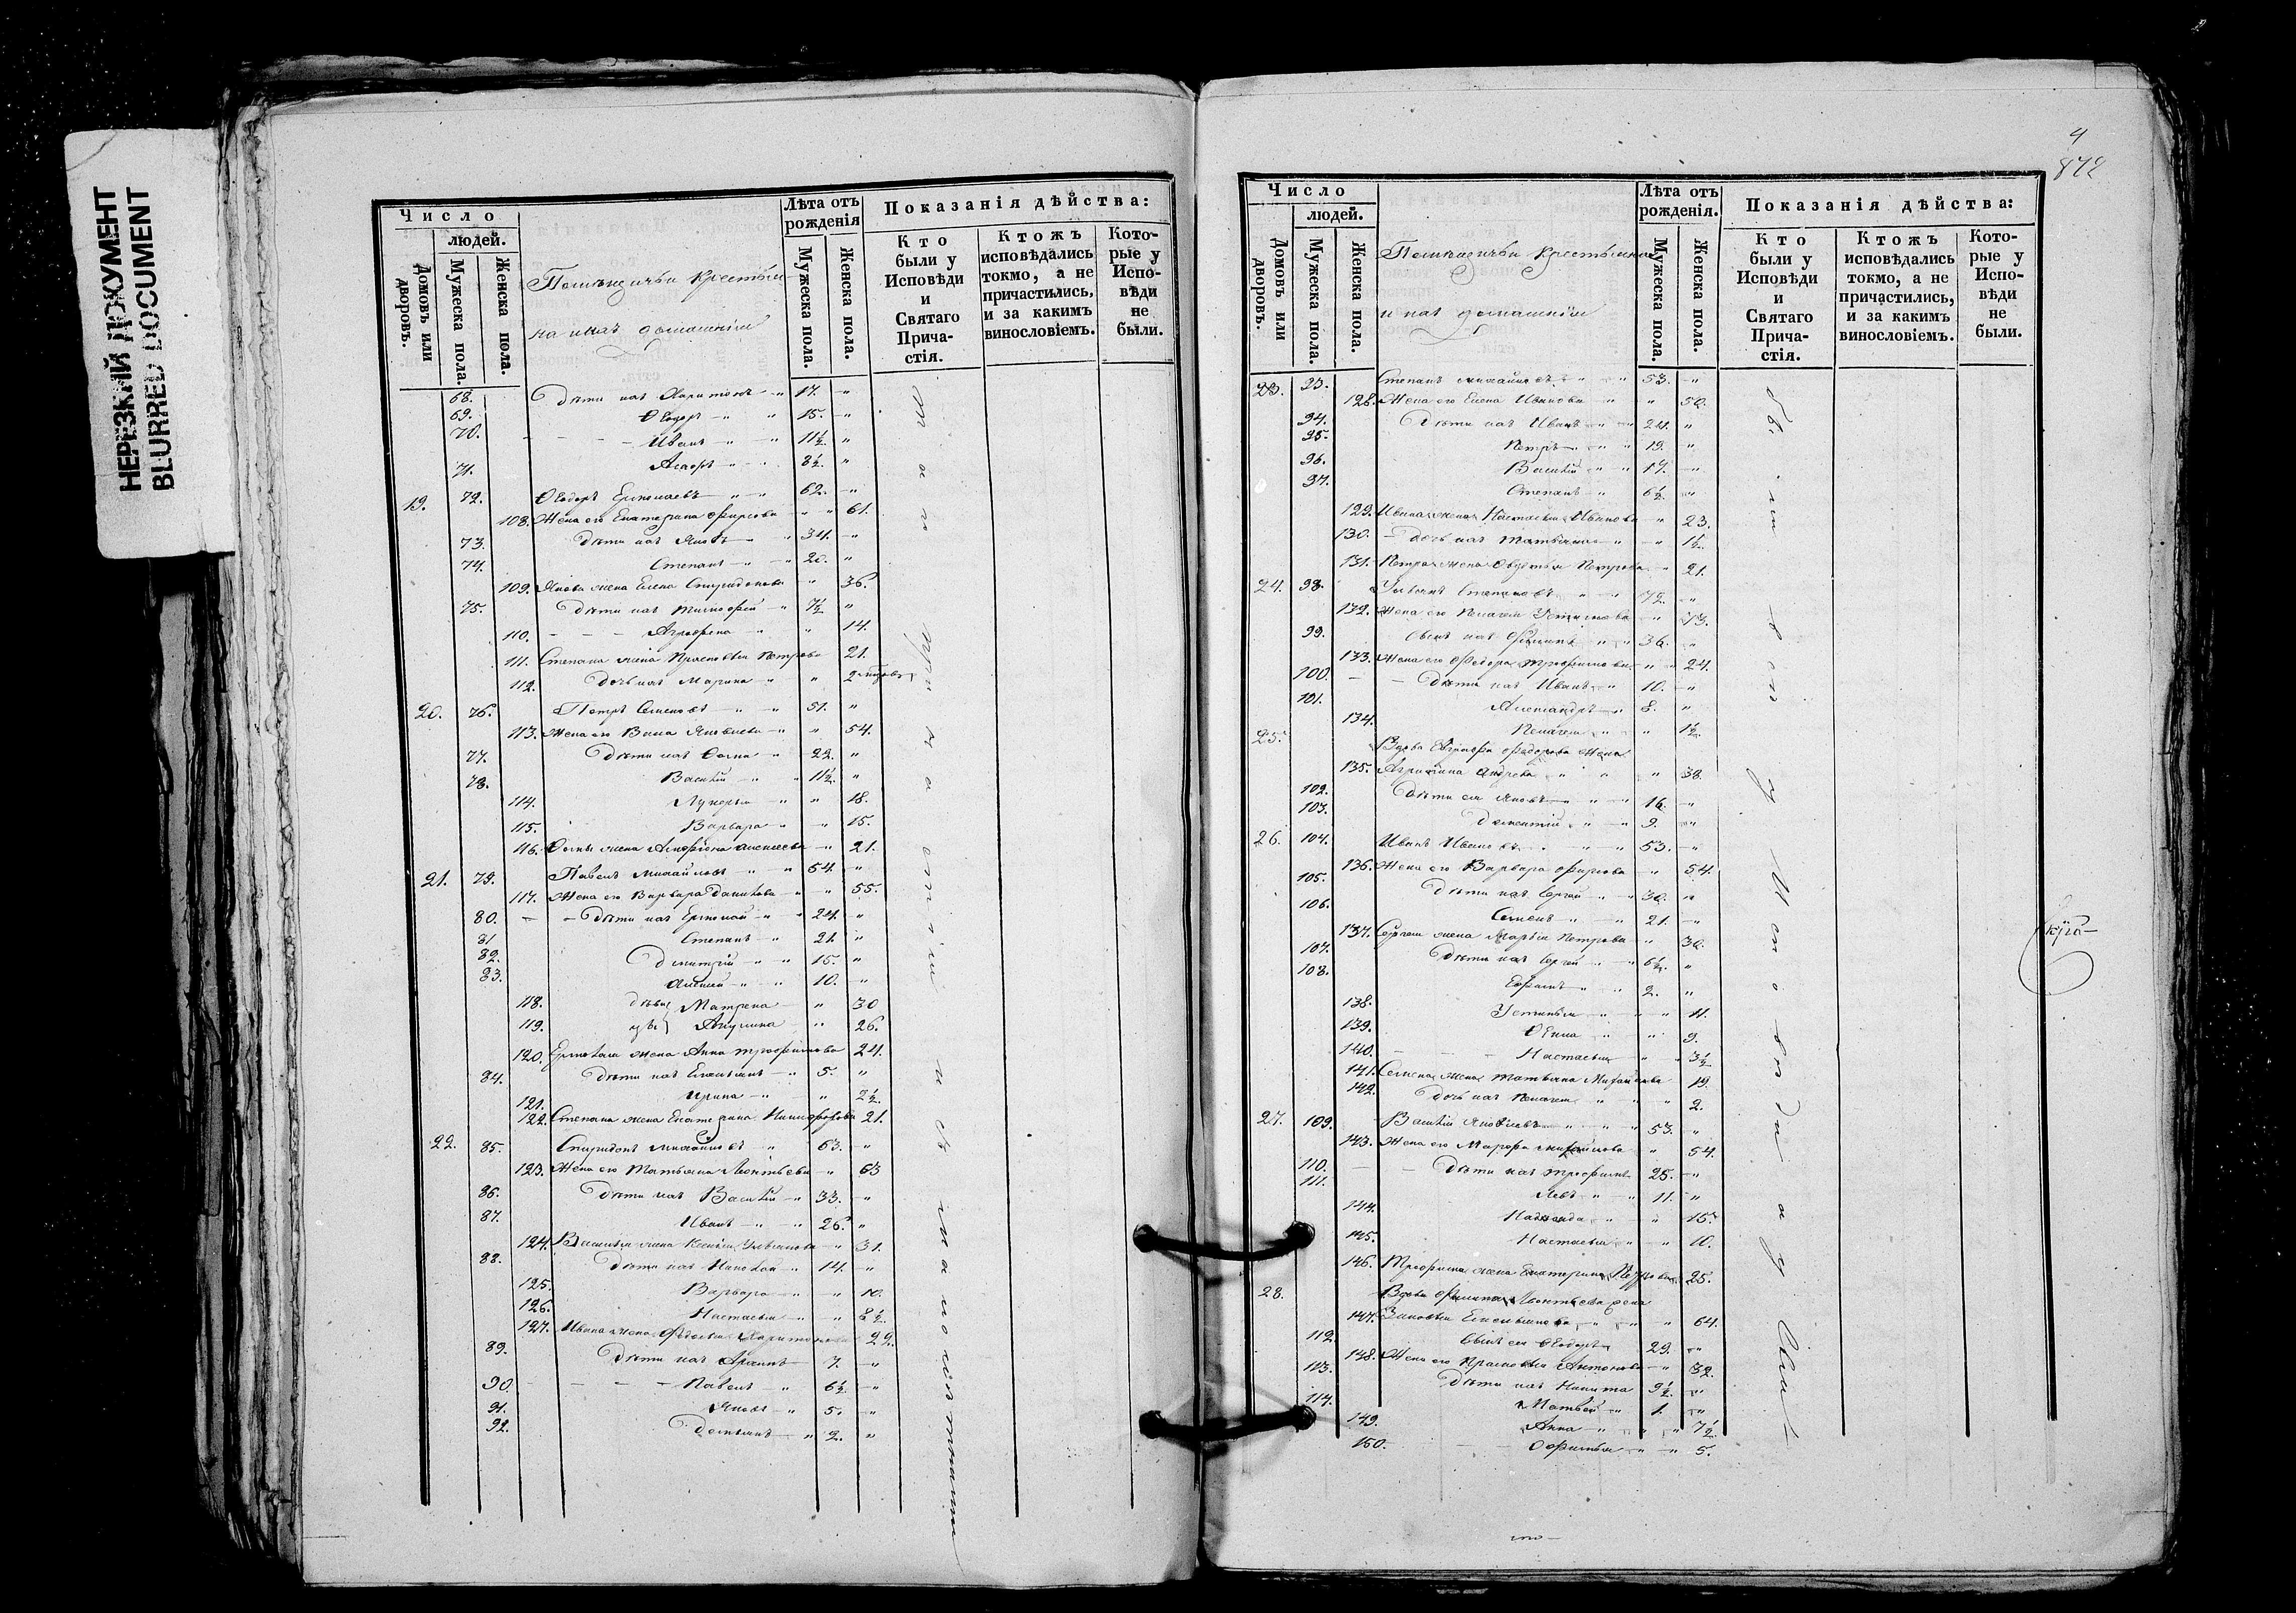 НЕРЕЗКИЙ ДОКУМЕНТ
BLURRED DOCUMENT
Число
людей.
Домовъ или дворовъ.
Мужеска пола.
Женска пола.
Помѣщичьи крестьяне
Лѣта отъ рожденія
Мужеска пола.
Женска пола.
Показанія дѣйства:
Кто были у Исповѣди и Святаго Причастія.
Ктожъ исповѣдались токмо, а не причастились, и за какимъ винословіемъ.
Которые у Исповѣди не были.
68. Дѣти ихъ Харитонъ 17.
69. Ѳедоръ 15.
70. Иванъ 11½
71. 8½.
19. 72. Ѳедоръ Ермолаевъ 62.
108. Жена его Екатерина Фирсова 61.
73. Дѣти ихъ Яковъ 34.
74. Степанъ 20.
109. Якова жена Елена Спиридонова 36.
75. Дѣти ихъ Тимофей 7½
110. Агрофена 14.
111. Степана жена Прасковья Петрова 21.
112. Дочь ихъ Марина 2
20. 76. Петръ Семеновъ 51.
113. Жена его Яковлева 54.
77. Дѣти ихъ Ѳома 22.
78. Василій 11½.
114. Лукерья 18.
115. Варвара 15.
116. Ѳомы жена Алексеева 21.
21. 79. Павелъ Михайловъ 54.
117. Жена его Варвара Данилова 55.
80. Дѣти ихъ Ермолай 24.
81 Степанъ 21.
82. Дмитрій 15.
83. Алексей 10.
118. Матрена 30
119. Акулина 26.
120. Ермолая жена Анна Трофимова 24.
84. Дѣти ихъ Емельянъ 5.
121. Ирина 2½.
122. Степана жена Екатерина Никифорова 21.
22. 85. Спиридонъ Михайловъ 63.
123. Жена его Татьяна Леонтьева 63
86. Дѣти ихъ Василій 33.
87. Иванъ 26.
124. Василья жена Ксенья Ульянова 31.
88. Дѣти ихъ Николай 14.
125. Варвара 10.
126. Настасья 8½.
127. Ивана жена Федосья Харитонова 22.
89. Дѣти ихъ 7.
90. Павелъ 6½
91. Яковъ 5.
92. Демьянъ 2.
4
872
Число
людей.
Домовъ или дворовъ.
Мужеска пола.
Женска пола.
Помѣщичьи крестьяне
и ихъ домашніи
Лѣта отъ рожденія.
Мужеска пола.
Женска пола.
Показанія дѣйства:
Кто были у Исповѣди и Святаго Причастія.
Ктожъ исповѣдались токмо, а не причастились, и за какимъ винословіемъ.
Которые у Исповѣди не были.
23. 93. Степанъ Михайловъ 53.
128. Жена его Елена Иванова 50.
94. Дѣти ихъ Иванъ 24.
95. Петръ 19.
96. Василій 17.
97. Степанъ 6½.
129. Ивана жена Настасья Иванова 23.
130. Дочь ихъ Татьяна 1½.
131. Петра жена Авдотья Петрова 21.
24. 98. Ульянъ Степановъ 72.
132. Жена его Пелагея Устинова 73.
99. Сынъ ихъ Филипъ 36.
133. Жена его Федора Трофимова 24.
100. Дѣти ихъ Иванъ 10.
101. Александръ 8.
134. Пелагея 1½.
25. Вдова Федорова жена
135. Андреева 38
102. Дѣти ея Яковъ 16.
103. Дементій 9.
26. 104. Иванъ Ивановъ 53.
136. Жена его Варвара Фирсова 54.
105. Дѣти ихъ Сергей 30.
106. Семенъ 21.
137. Сергея жена Марья Петрова 30.
107. Дѣти ихъ Сергей 6½.
108. 2.
138. Устинья 11.
139. 9.
140. Настасья 3½
141. Семена жена Татьяна Михайлова 19.
142. Дочь ихъ Пелагея 2.
27. 109. Василій Яковлевъ 53.
143. Жена его Марфа Михайлова 54.
110. Дѣти ихъ Трофимъ 25.
111. Левъ 11.
144. Надежда 15.
145. Настасья 10.
146. Трофима жена Екатерина Петрова 25.
28. Вдова Филипа Леонтьева жена
147. Зиновья Емельянова 64.
112. Сынъ ея Ѳедоръ 29.
148. Жена его Прасковья Антонова 32.
113. Дѣти ихъ Никита 9½.
114. Матвей 1.
149. Анна 7½
150. 5.